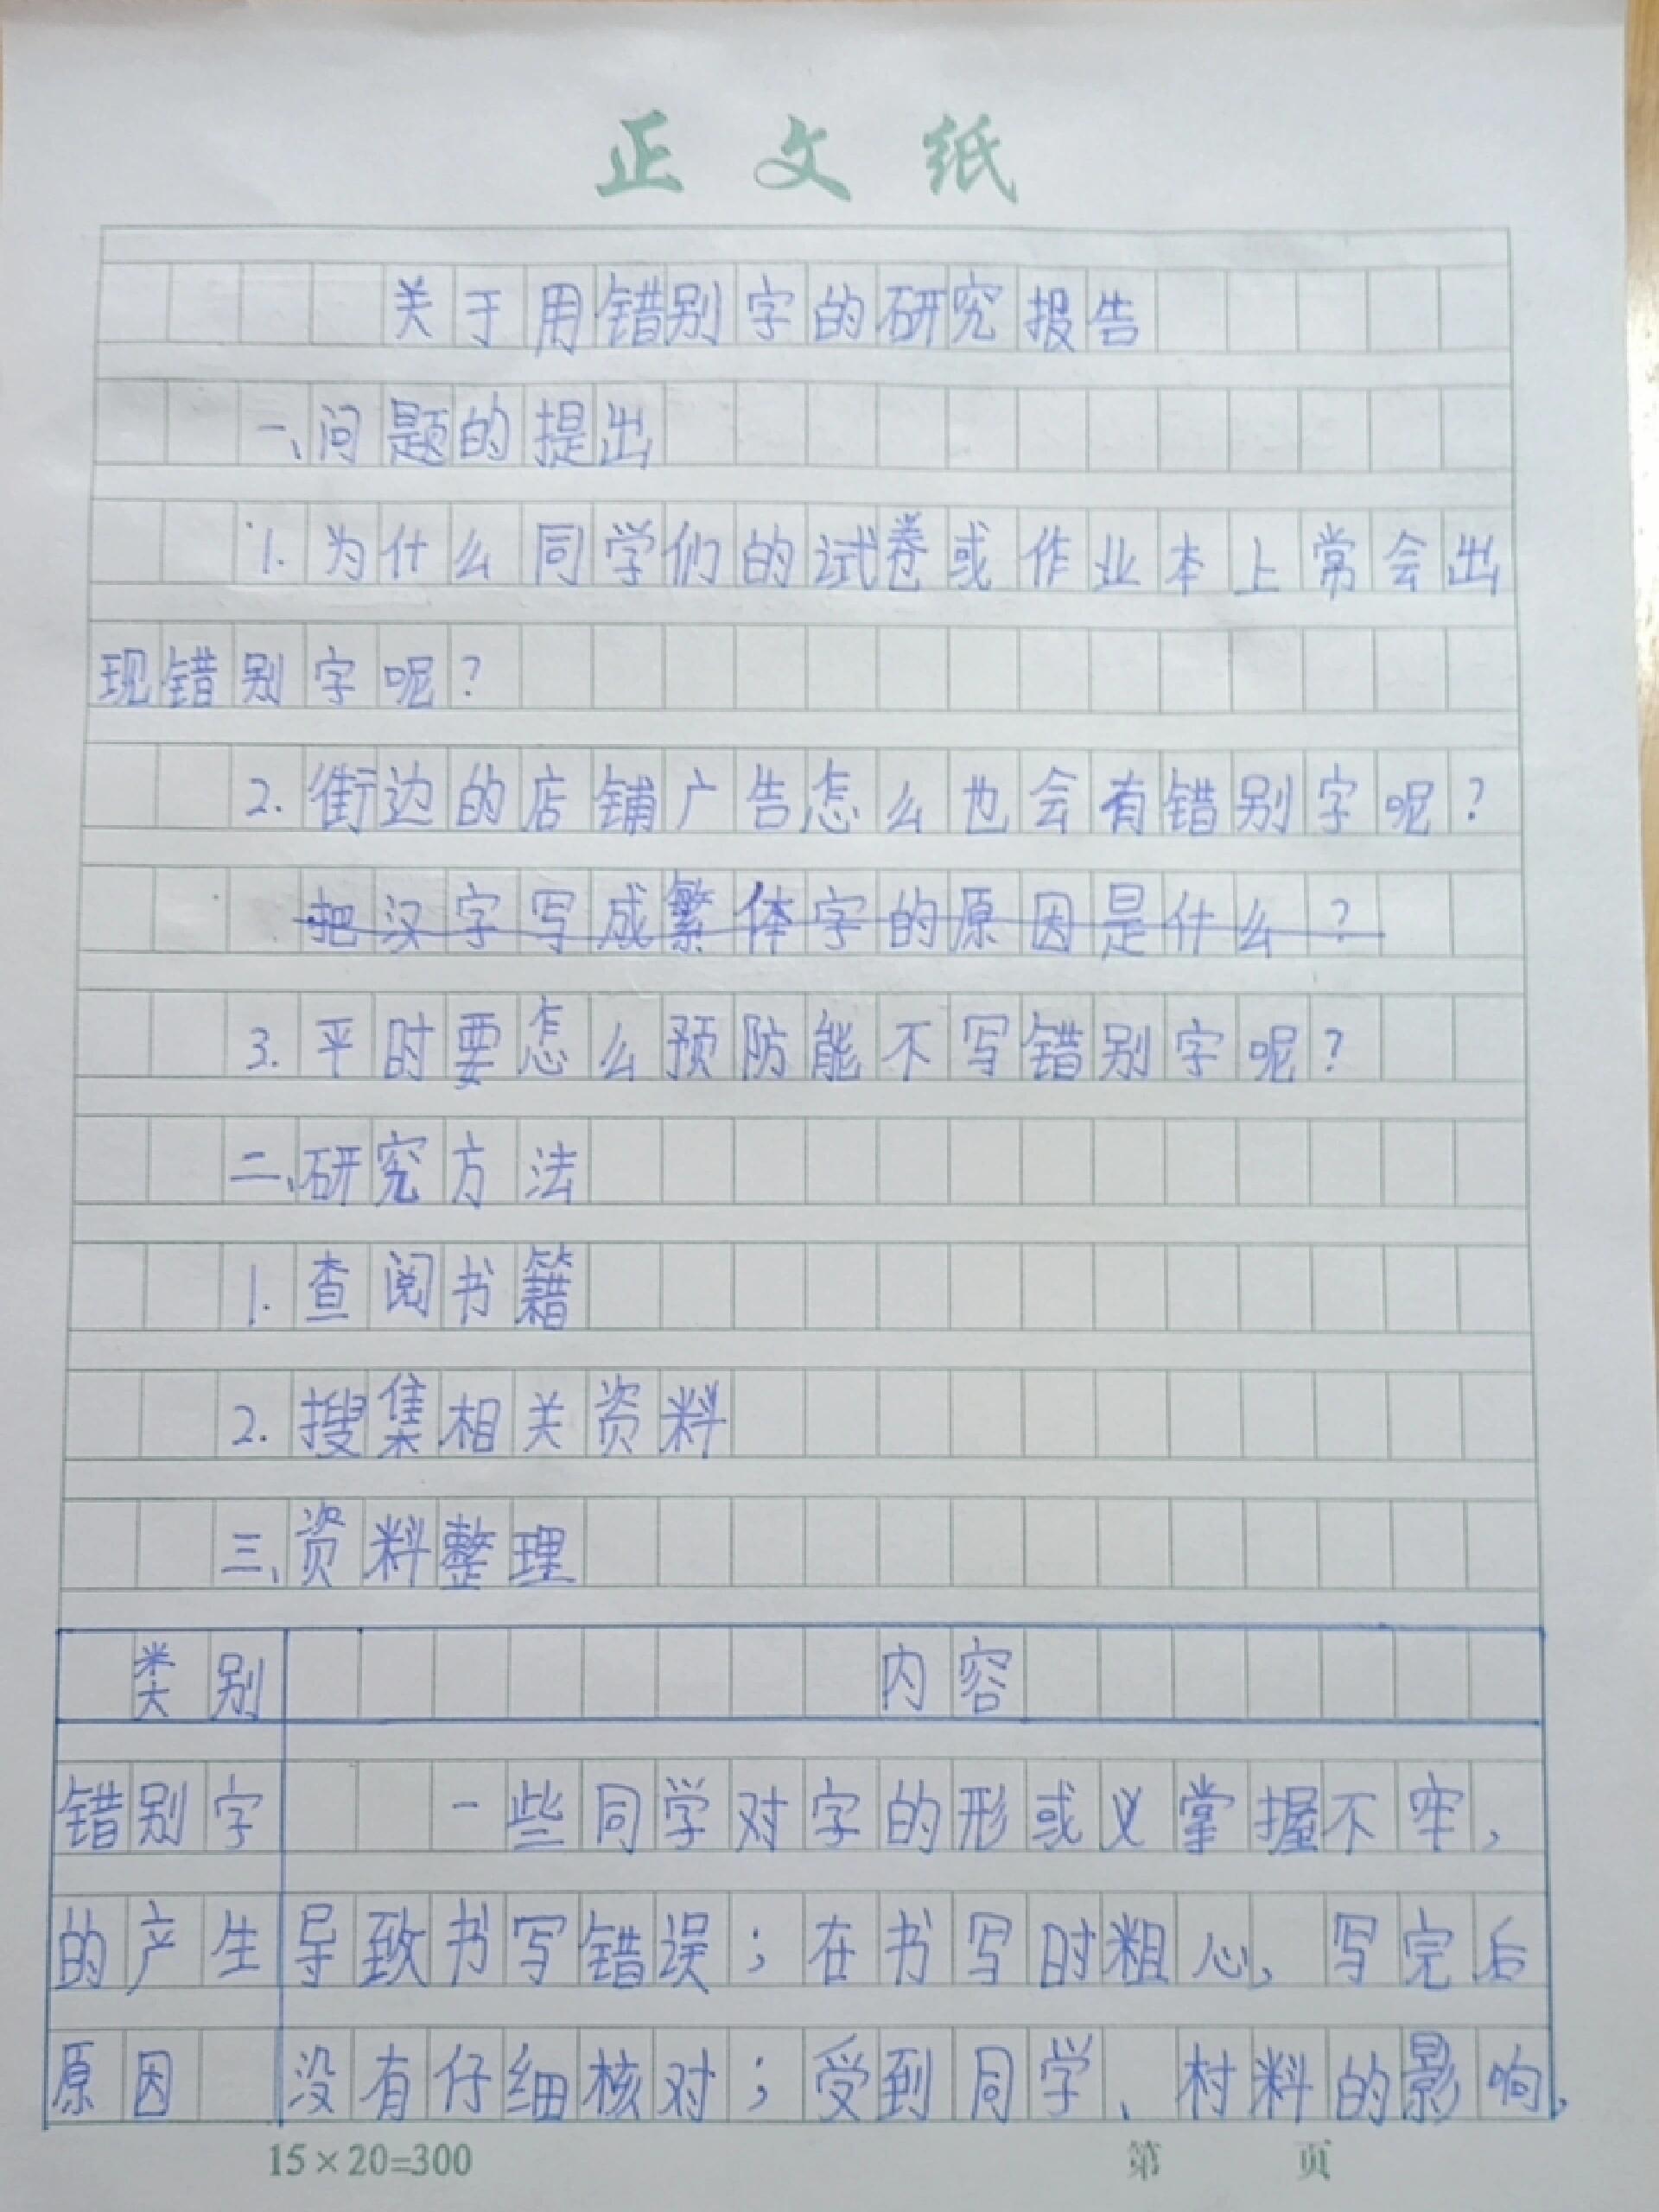 正文纸
关于用错别字的研究报告
一、问题的提出
1.为什么同学们的试卷或作业本上常会出
现错别字呢?
2.街边的店铺广告怎么也会有错别字呢?
把汉字写成繁体字的原因是什么?
3.平时要怎么预防能不写错别字呢?
二、研究方法
1.查阅书籍
2.搜集相关资料
三、资料整理
类别 内容
错别字 一些同学对字的形或义掌握不牢,
的产生 导致书写错误;在书写时粗心,写完后
原因 没有仔细核对;受到同学、材料的影响,
15×20=300 第 页